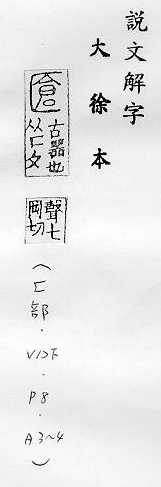 說文解字
大徐本
𠥐
古器也
从匚
聲七
岡切
(匚部.V12下.P8.A3~4)